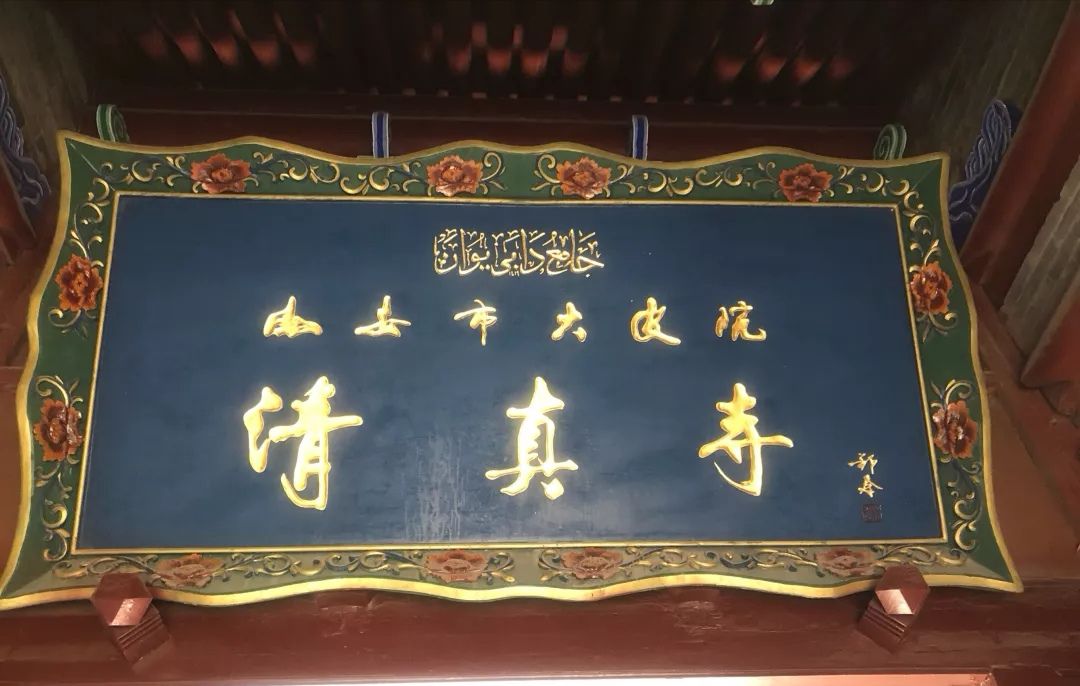 جامع دا بي يوان
西安市大皮院
清真寺